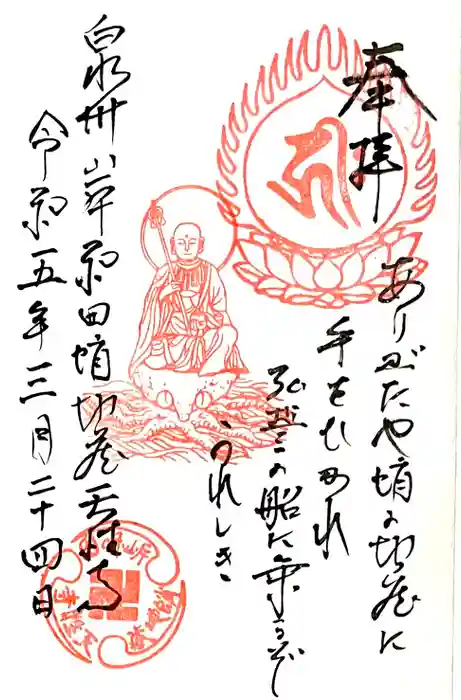 奉拝
ありがたや蛸の地蔵に
手をむすれ
弘誓の船に乗るぞ
うれしき
泉州岸和田蛸地蔵天性寺
令和五年三月二十四日